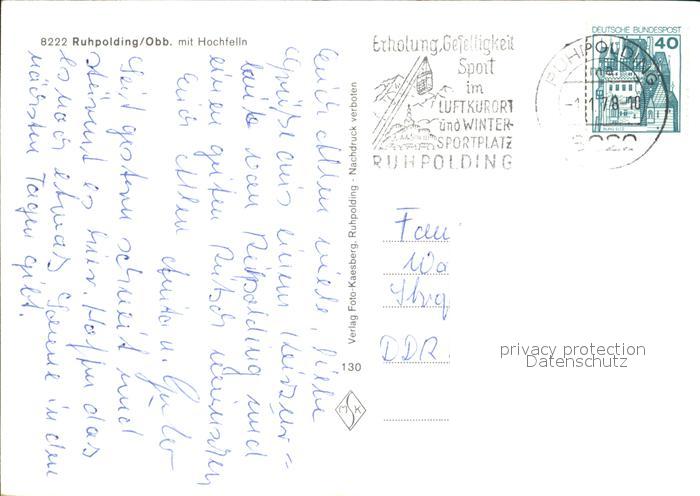 8222 Ruhpolding/Obb. mit Hochfelln
Euch Allen viele, liebe
Grüße aus einem Kurzur=
laub von Ruhpolding und
einen guten Rutsch wünschen
Euch Allen Anita u.
Seit gestern schneit und
stürmt es hier. Hoffen das
es noch etwas Sonne in den
nächsten Tagen gibt.
Verlag Foto-Kaesberg, Ruhpolding - Nachdruck verboten
130
M S K
Erholung, Geselligkeit
Sport
im
LUFTKURORT
und WINTER-
SPORTPLATZ
RUHPOLDING
DEUTSCHE BUNDESPOST
40
BURG ELTZ
RUHPOLDING
8222
Fam
Wo
DDR
privacy protection
Datenschutz